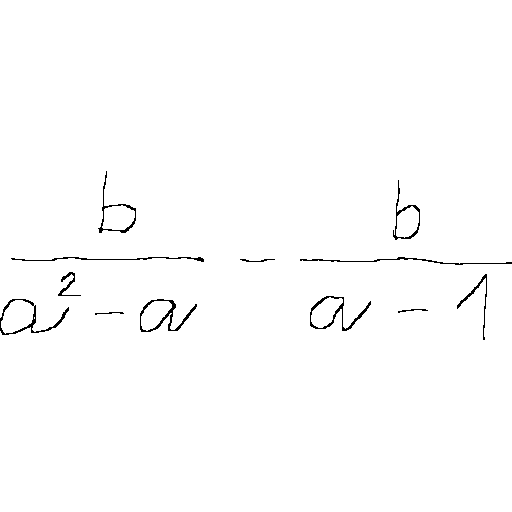 \frac{b}{a^2-a} - \frac{b}{a-1}